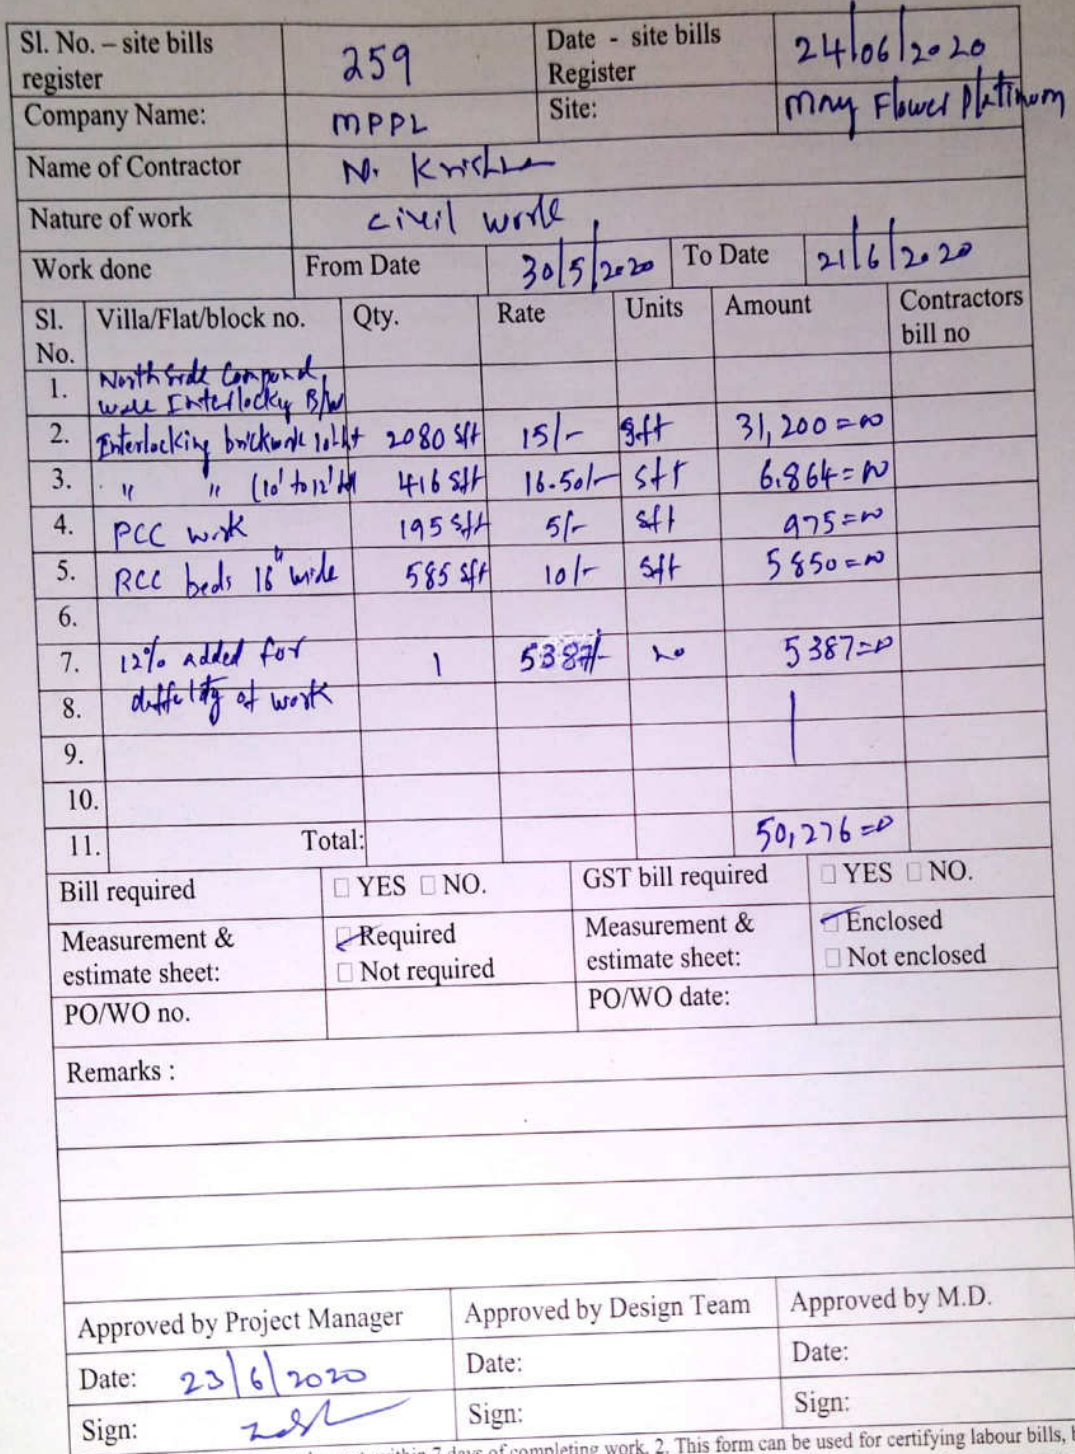 Sl. No. – site bills register 259 Date - site bills Register 24/06/2020
Company Name: MPPL Site: May Flower Platinum
Name of Contractor N. Krishna
Nature of work civil work
Work done From Date 30/5/2020 To Date 21/6/2020
Sl. No. Villa/Flat/block no. Qty. Rate Units Amount Contractors bill no
1. North Side Compound
wall Interlocky B/W
2. Interlocking brickwork 2080 sft 15/- sft 31,200=00
3. " " (10' to 12' 416 sft 16.50/- sft 6,864=00
4. PCC work 195 sft 5/- sft 975=00
5. RCC beds 16" wide 585 sft 10/- sft 5850=00
6.
7. 12% added for 1 5387/- no 5387=00
8. diffelity of work
9.
10.
11. Total: 50,276=00
Bill required □ YES □ NO. GST bill required □ YES □ NO.
Measurement & estimate sheet: ☑ Required □ Not required Measurement & estimate sheet: ☑ Enclosed □ Not enclosed
PO/WO no. PO/WO date:
Remarks :
Approved by Project Manager Approved by Design Team Approved by M.D.
Date: 23/6/2020 Date: Date:
Sign: Sign: Sign:
7 days of completing work. 2. This form can be used for certifying labour bills,